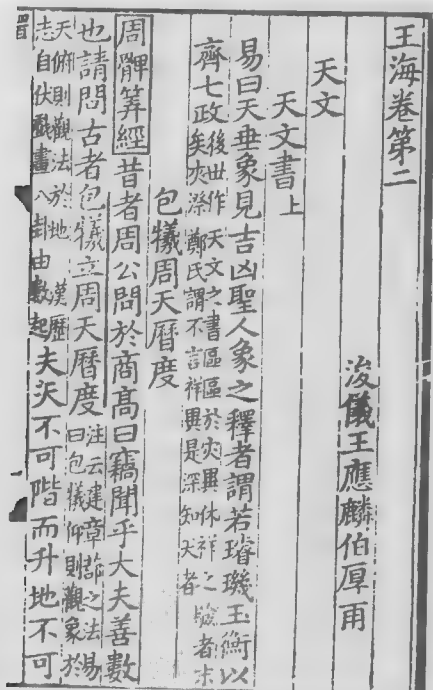 王海卷第二
浚儀王應麟伯厚甫
天文
天文書上
易曰天垂象見吉凶聖人象之釋者謂若璿璣玉衡以
齊七政後世作天文之書區區於災異休祥之驗者末
矣夾漈鄭氏謂不言祥異是深知天者
包犧周天曆度
周髀筭經昔者周公問於商高曰竊聞乎大夫善數
也請問古者包犧立周天曆度注云建章蔀之法易
曰包犧仰則觀象於
天俯則觀法於地漢歷
志自伏戲畫八卦由數起夫天不可階而升地不可